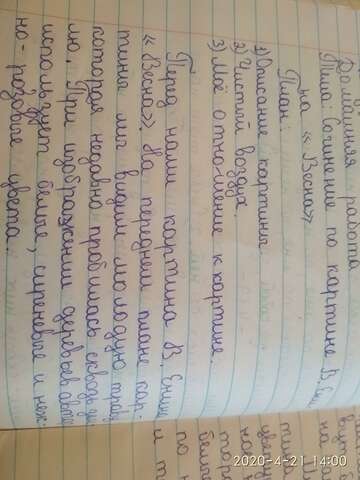 Домашняя работа.
Тема: Сочинение по картине В.
на «Весна»
План.
1) Описание картины
2) Чистый воздух.
3) Моё отношение к картине.
Перед нами картина В.
«Весна». На переднем плане кар-
тины мы видим молодую
которая недавно пробилась сквозь
При изображении деревьев
использует белые, сиреневые и неж-
но-розовые цвета.
2020-4-21 14:00